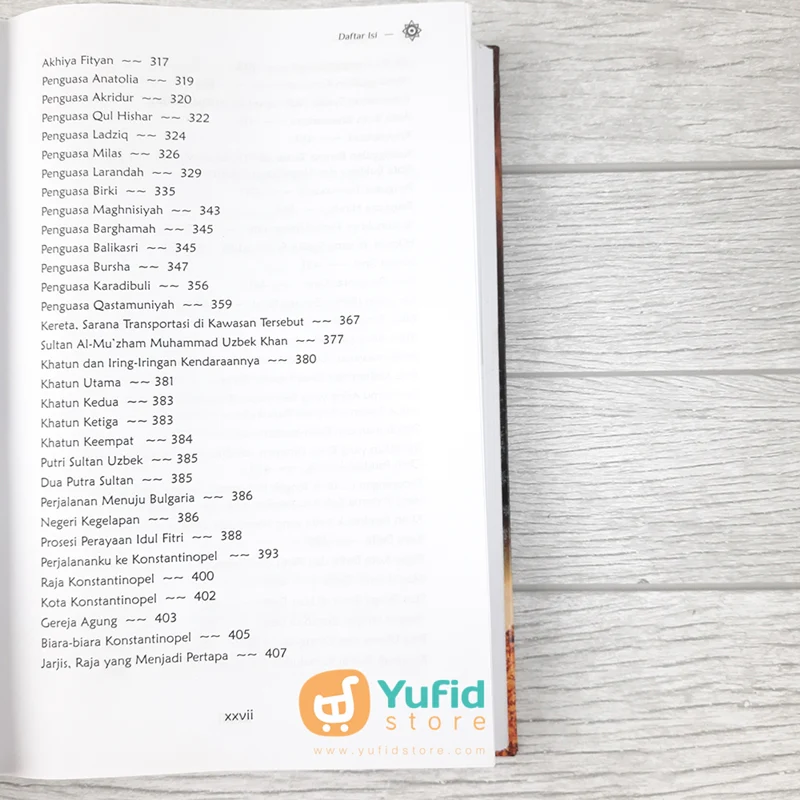 Daftar Isi —
Akhiya Fityan ~~ 317
Penguasa Anatolia ~~ 319
Penguasa Akridur ~~ 320
Penguasa Qul Hishar ~~ 322
Penguasa Ladziq ~~ 324
Penguasa Milas ~~ 326
Penguasa Larandah ~~ 329
Penguasa Birki ~~ 335
Penguasa Maghnisiyah ~~ 343
Penguasa Barghamah ~~ 345
Penguasa Balikasri ~~ 345
Penguasa Bursha ~~ 347
Penguasa Karadibuli ~~ 356
Penguasa Qastamuniyah ~~ 359
Kereta, Sarana Transportasi di Kawasan Tersebut ~~ 367
Sultan Al-Mu`zham Muhammad Uzbek Khan ~~ 377
Khatun dan Iring-Iringan Kendaraannya ~~ 380
Khatun Utama ~~ 381
Khatun Kedua ~~ 383
Khatun Ketiga ~~ 383
Khatun Keempat ~~ 384
Putri Sultan Uzbek ~~ 385
Dua Putra Sultan ~~ 385
Perjalanan Menuju Bulgaria ~~ 386
Negeri Kegelapan ~~ 386
Prosesi Perayaan Idul Fitri ~~ 388
Perjalananku ke Konstantinopel ~~ 393
Raja Konstantinopel ~~ 400
Kota Konstantinopel ~~ 402
Gereja Agung ~~ 403
Biara-biara Konstantinopel ~~ 405
Jarjis, Raja yang Menjadi Pertapa ~~ 407
xxvii
Yufid
store
www.yufidstore.com